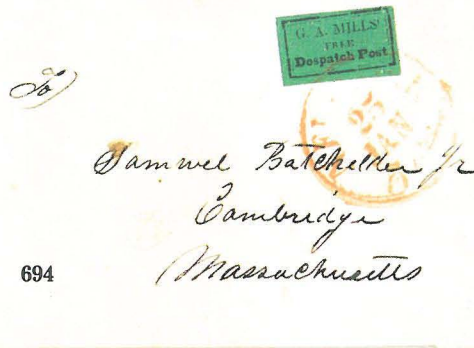 G. A. MILLS'
FREE
Despatch Post
25
JAN
To
Samuel Batchelder Jr
Cambridge
Massachusetts
694